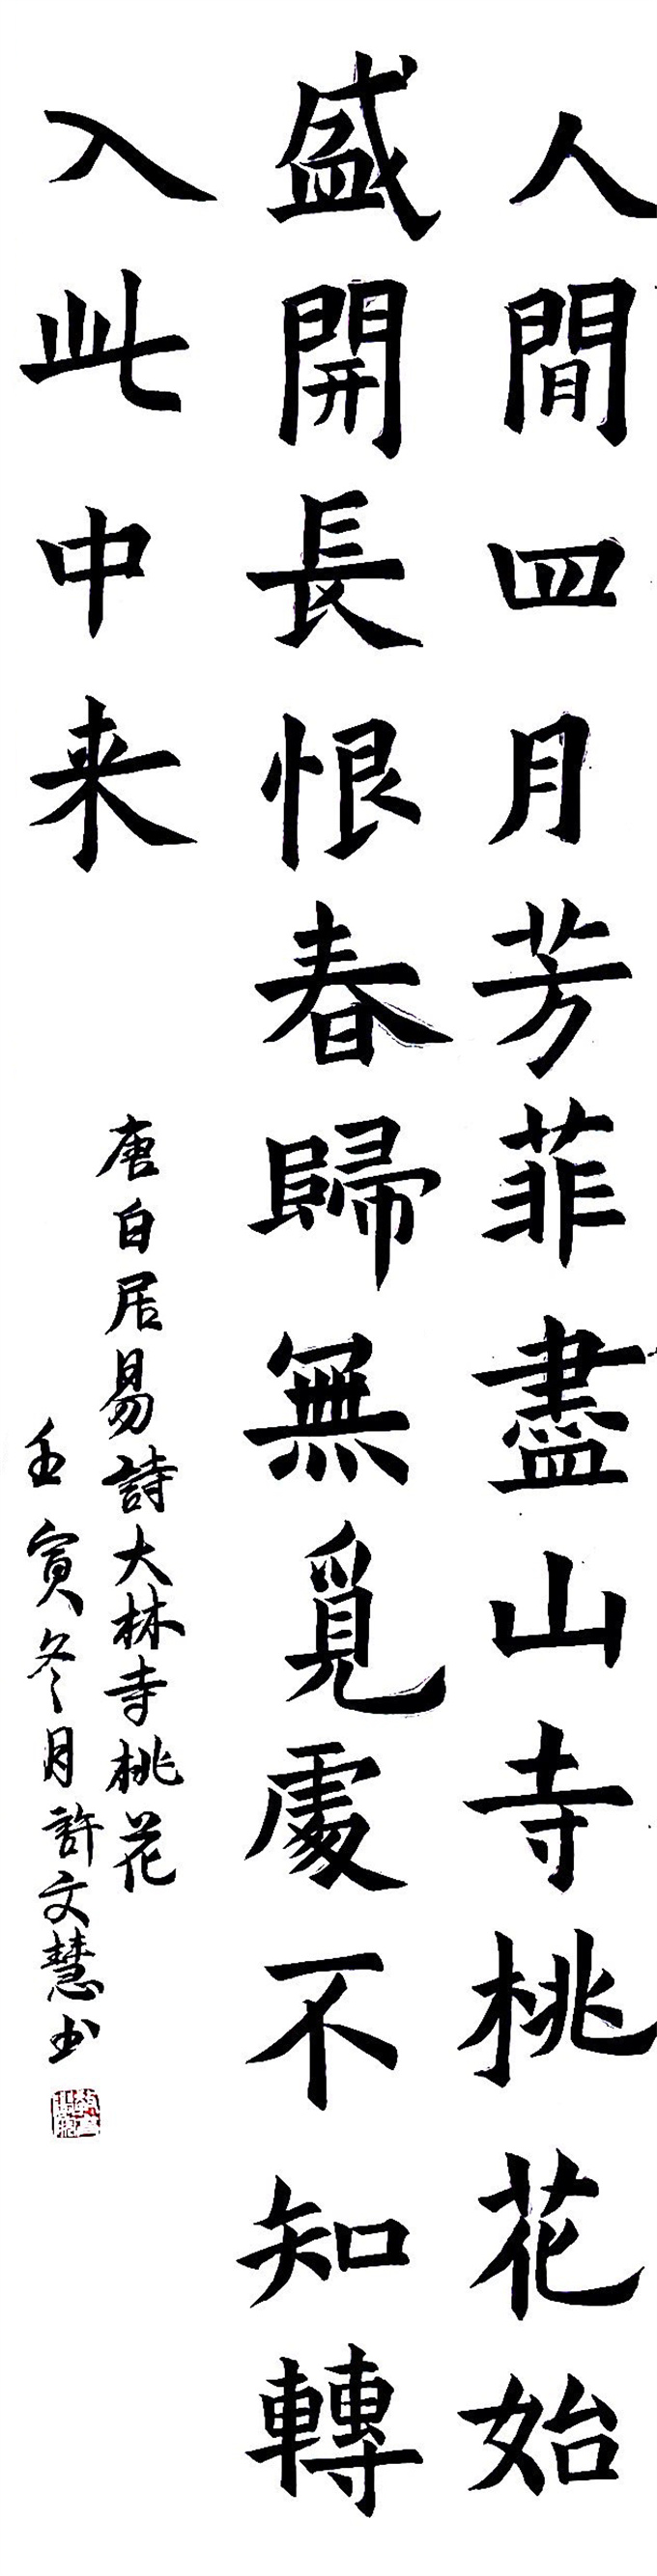 人間四月芳菲盡山寺桃花始
盛開長恨春歸無覓處不知轉
入此中来
唐白居易詩大林寺桃花
壬寅冬月許文慧书